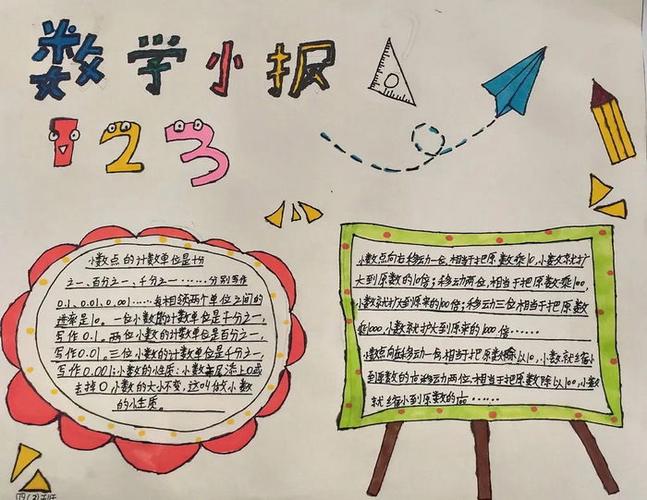 数学小报
123
小数点的计数单位是十分
之一、百分之一、千分之一……分别写作
0.1、0.01、0.001……每相邻两个单位之间的
进率是10。一位小数的计数单位是十分之一,
写作0.1。两位小数的计数单位是百分之一,
写作0.01。三位小数的计数单位是千分之一,
写作0.001;小数的性质:小数末尾添上0或
去掉0,小数的大小不变,这叫做小数
的小性质。
小数点向右移动一位,相当于把原数乘10,小数就扩
大到原数的10倍;移动两位,相当于把原数乘100,
小数就扩大到原来的100倍;移动三位相当于把原数
乘1000,小数就扩大到原来的1000倍……
小数点向左移动一位,相当于把原数除以10,小数就缩小
到原数的 移动两位,相当于把原数除以100,小数
就缩小到原数的 ……
四(2)